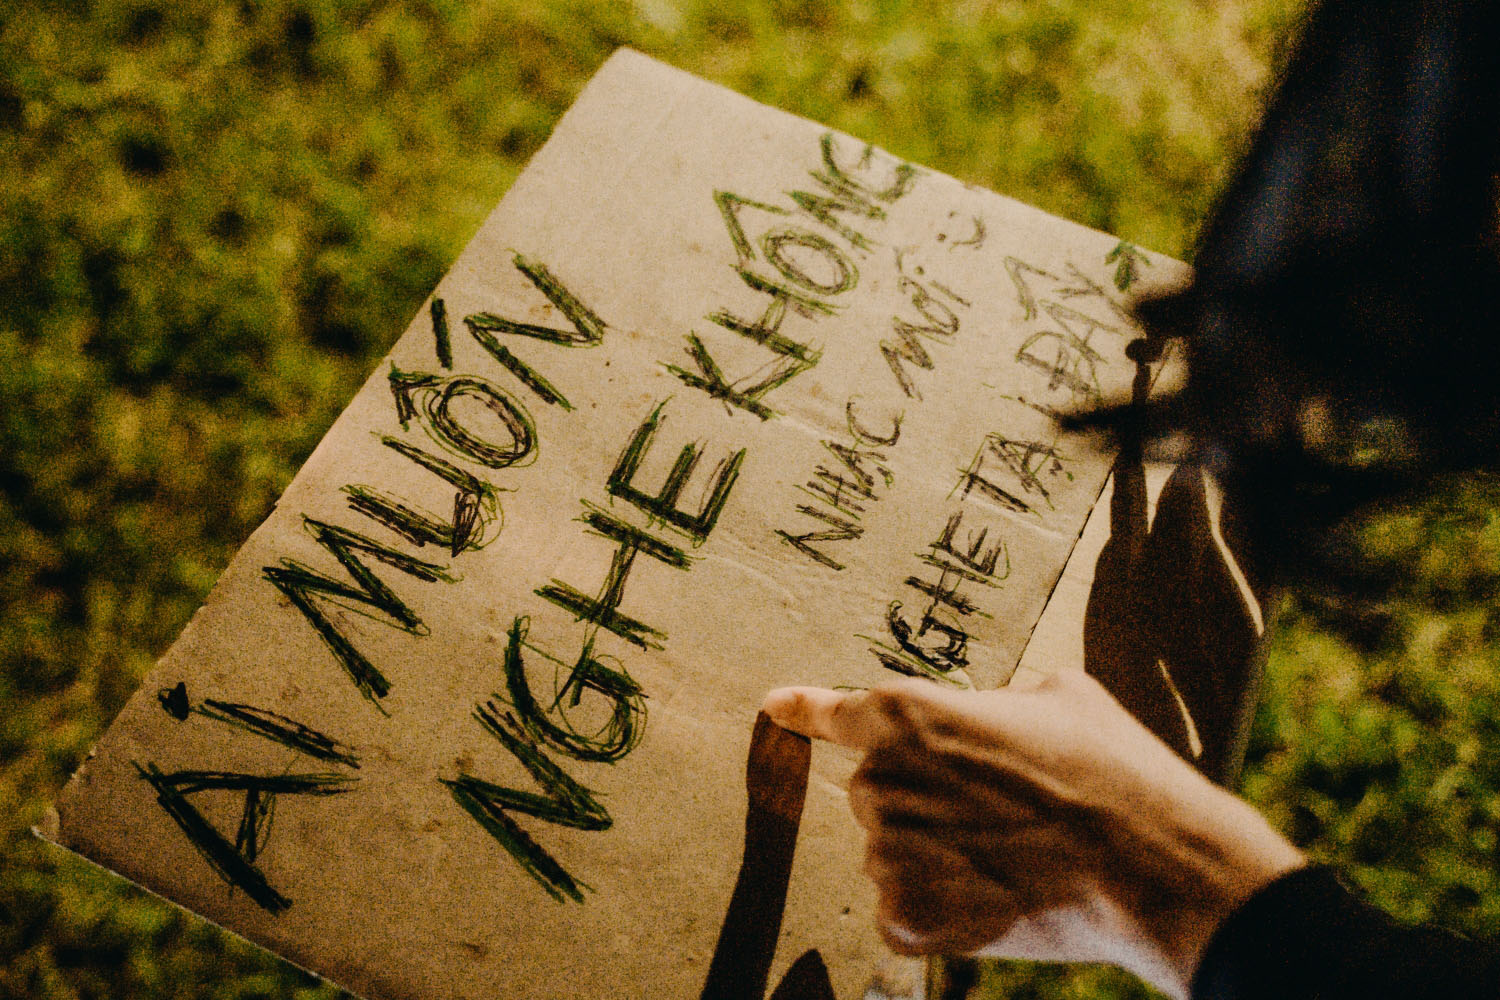 AI MUỐN
NGHE KHÔNG
NHẠC MỚI :)
NGHE TẠI ĐÂY